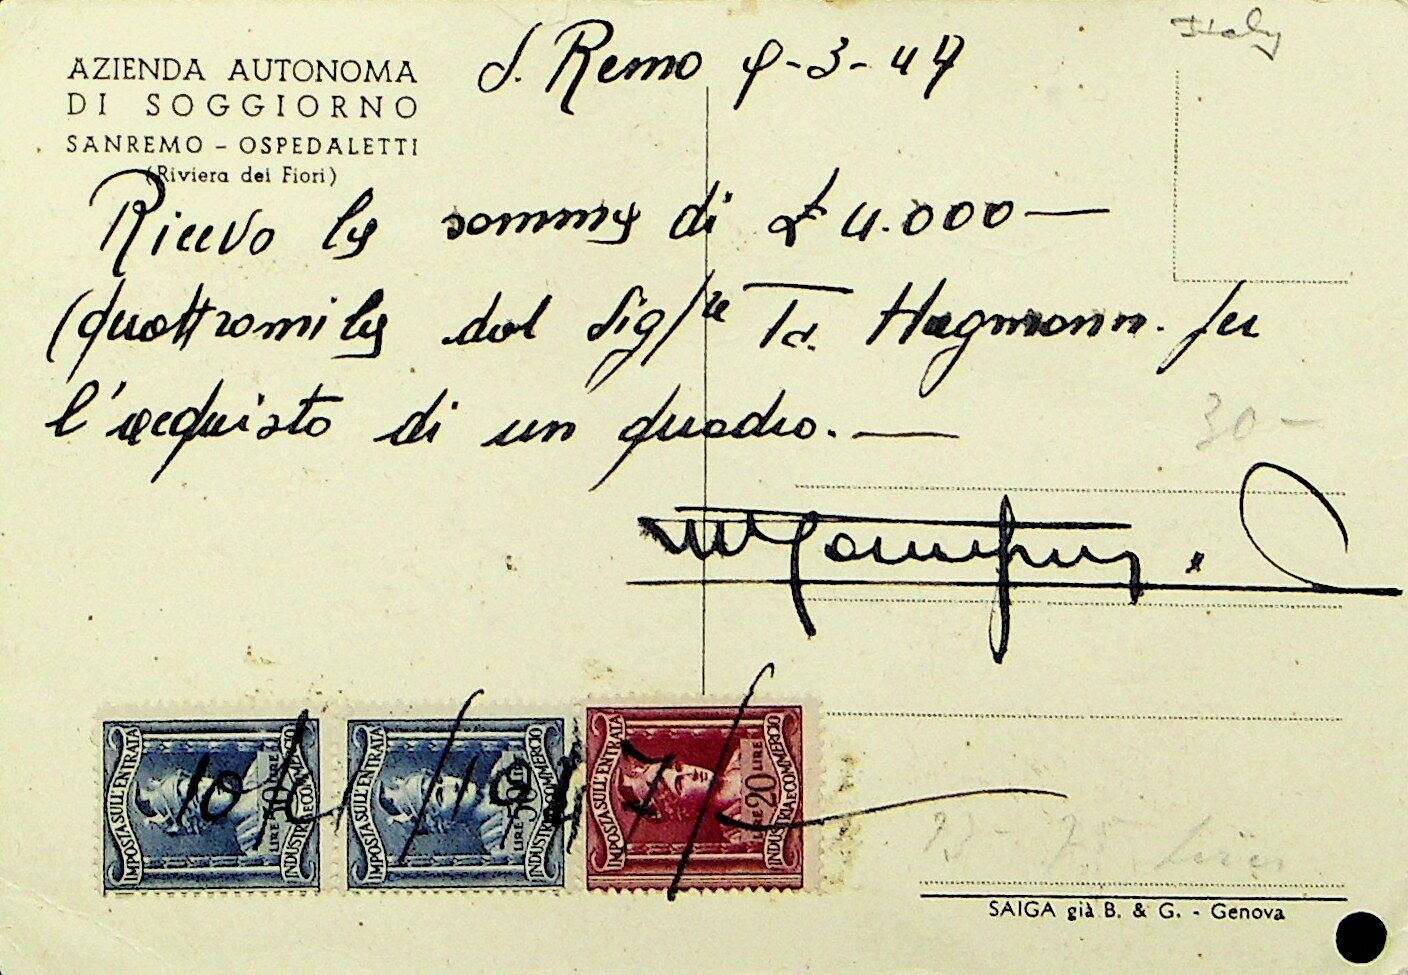 Italy
AZIENDA AUTONOMA
DI SOGGIORNO
SANREMO - OSPEDALETTI
(Riviera dei Fiori)
S. Remo 9-3-47
Ricevo la somma di £ 4.000—
(quattromila dal Sig/re Tr. Hagmann. per
l'acquisto di un quadro.—
30-
IMPOSTA SULL'ENTRATA
LIRE 50 LIRE
INDUSTRIA E COMMERCIO
IMPOSTA SULL'ENTRATA
LIRE 50 LIRE
INDUSTRIA E COMMERCIO
IMPOSTA SULL'ENTRATA
LIRE 20 LIRE
INDUSTRIA E COMMERCIO
SAIGA già B. & G. - Genova